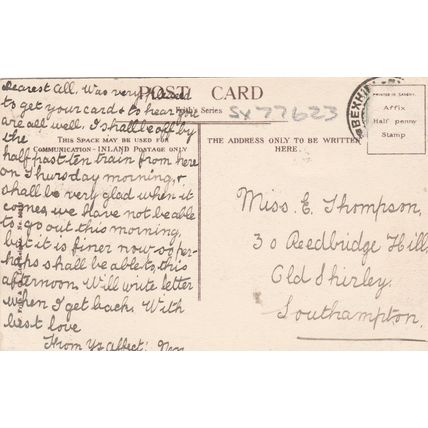 POST CARD
Frith's Series
Sx 77623
PRINTED IN SAXONY.
Affix
Half penny
Stamp
BEXHILL
THIS SPACE MAY BE USED FOR
COMMUNICATION - INLAND POSTAGE ONLY
THE ADDRESS ONLY TO BE WRITTEN
HERE.
Dearest all. Was very pleased
to get your card & to hear you
are all well. I shall be off by
the
half past ten train from here
on Thursday morning, &
shall be very glad when it
comes, we have not be able
to go out this morning,
but it is finer now so per-
haps shall be able to, this
afternoon. Will write letter
when I get back. With
best love
From Yr affect:
Miss. E. Thompson,
30 Reedbridge Hill,
Old Shirley.
Southampton.